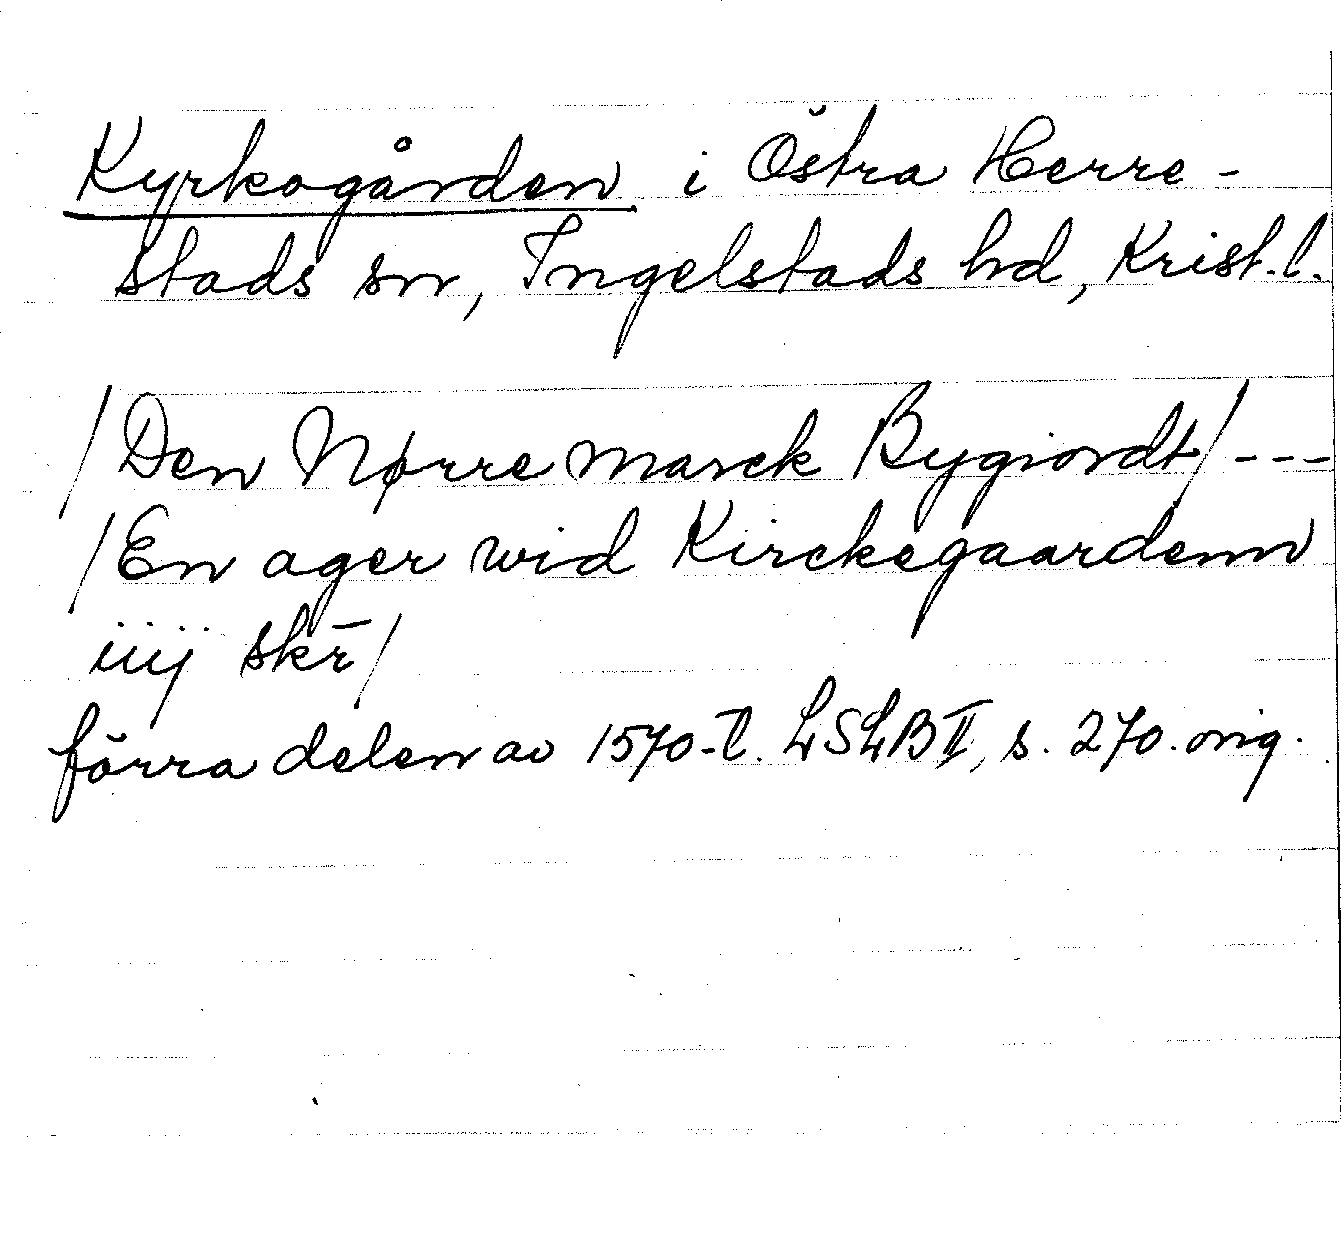 Kyrkogården i Östra Herre-
stads sn, Ingelstads hd, Krist. l.
/Den Nørre Marck Bygiordt/ ---
/En ager wid Kirckegaardenn
iiij skr̄/
förra delen av 1570-t. LSLB II, s. 270. orig.